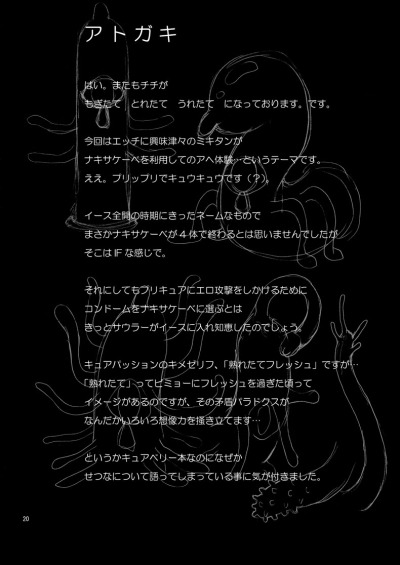 アトガキ
はい。またもチチが
もぎたて とれたて うれたて になっております。です。
今回はエッチに興味津々のミキタンが
ナキサケーベを利用してのアヘ体験…というテーマです。
ええ。プリップリでキュウキュウです（？）。
イース全開の時期にきったネームなもので
まさかナキサケーベが４体で終わるとは思いませんでしたが
そこはIFな感じで。
それにしてもプリキュアにエロ攻撃をしかけるために
コンドームをナキサケーベに選ぶとは
きっとサウラーがイースに入れ知恵したのでしょう。
キュアパッションのキメゼリフ、「熟れたてフレッシュ」ですが…
「熟れたて」ってビミョーにフレッシュを過ぎた頃って
イメージがあるのですが、その矛盾パラドクスが
なんだかいろいろ想像力を掻き立てます…
というかキュアベリー本なのになぜか
せつなについて語ってしまっている事に気が付きました。
20